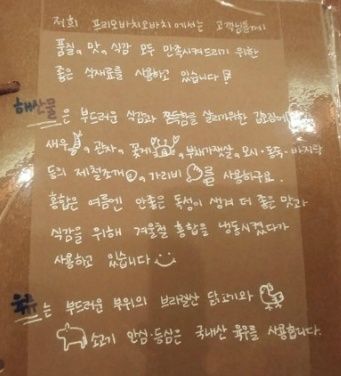 저희 프리모바치오바치에서는 고객님들께
품질, 맛, 식감 모두 만족시켜드리기 위한
좋은 식재료를 사용하고 있습니다!
해산물은 부드러운 식감과 쫀득함을 살리기위한
새우, 관자, 꽃게, 부채가잿살, 모시·동죽·바지락
등의 제철조개, 가리비를 사용하구요.
홍합은 여름엔 안좋은 독성이 생겨 더 좋은 맛과
식감을 위해 겨울철 홍합을 냉동시켰다가
사용하고 있습니다
육류는 부드러운 부위의 브라질산 닭고기와
소고기 안심·등심은 국내산 육우를 사용합니다.